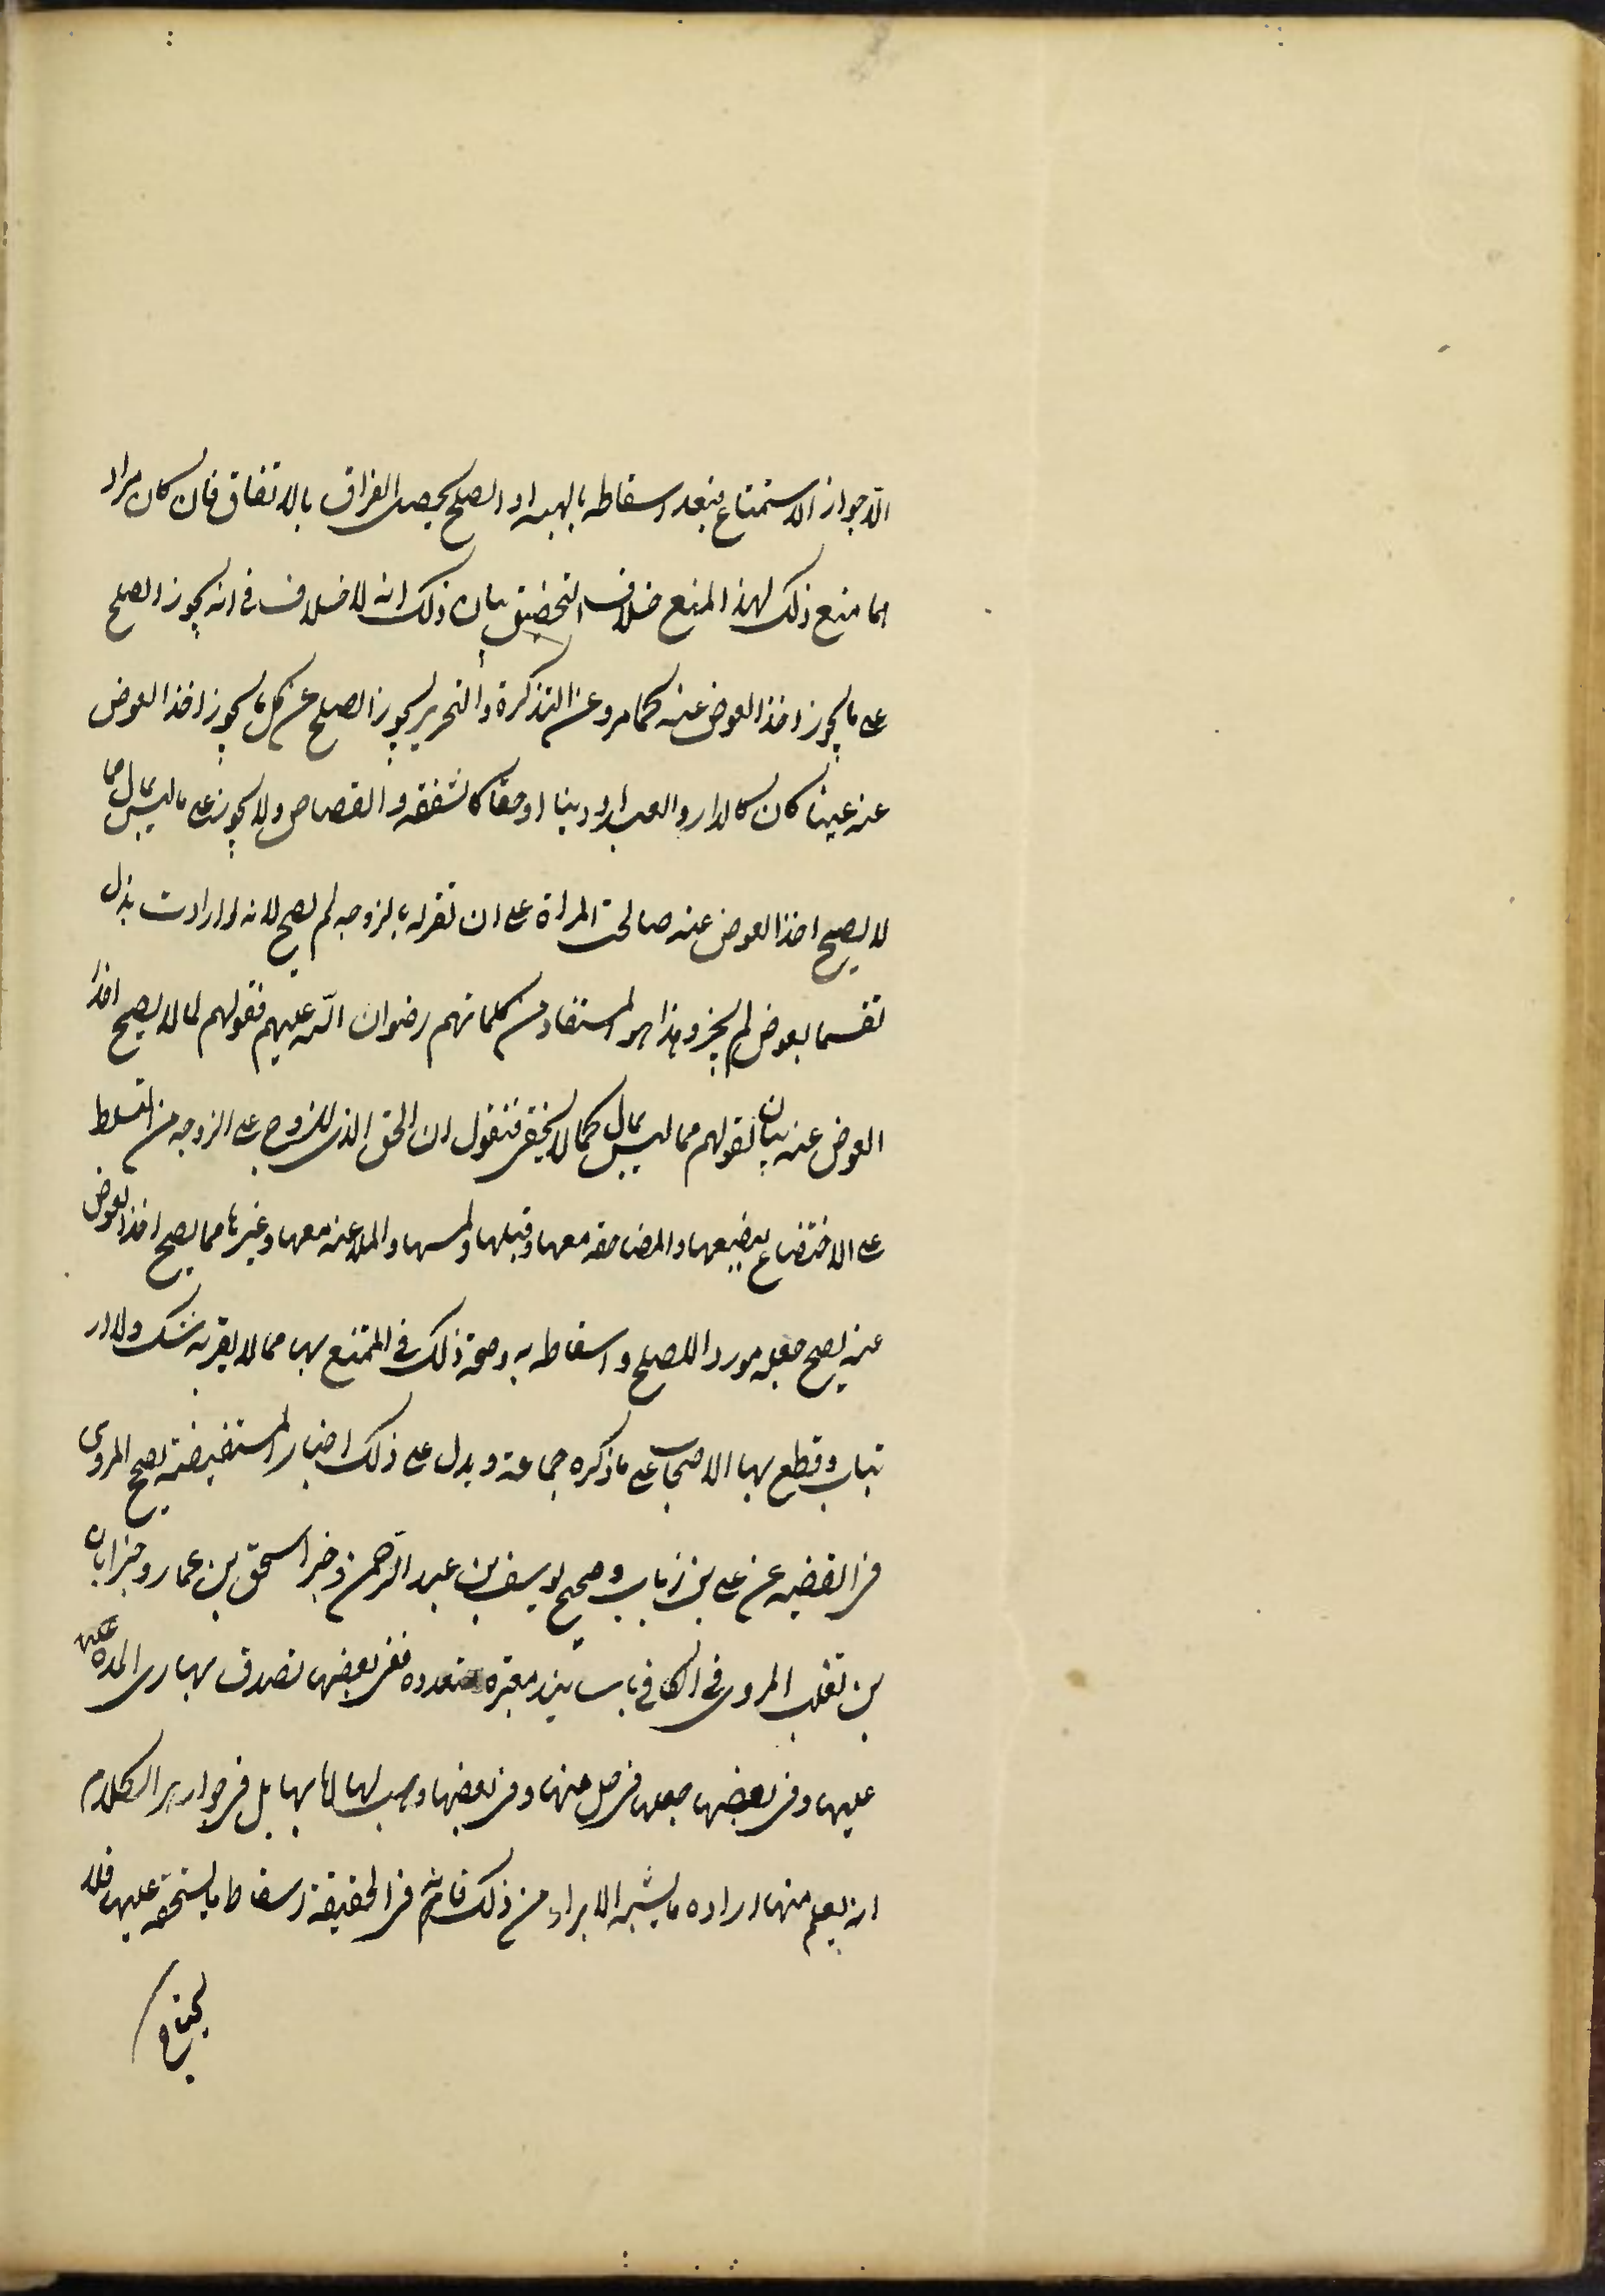 الا جواز الاستمتاع فبعد اسقاطه بالهبه او الصلح يحصل الفراق بالاتفاق فان كان مراد
انما منع ذلك لهذا المنع خلاف التحقيق بيان ذلك انه لا خلاف في انه يجوز الصلح
على ما يجوز اخذ العوض عنه كما مر وعن التذكرة والتحرير يجوز الصلح عن كل ما يجوز اخذ العوض
عنه عينا كان كالدار والعبد او دينا او حقا كالشفعه والقصاص ولا يجوز على ما ليس بمال مما
لا يصح اخذ العوض عنه صالحت المراة على ان تقر له بالزوجه لم يصح لانه لو ارادت بذل
نفسها بعوض لم يجز وهذا هو المستفاد من كلماتهم رضوان الله عليهم فقولهم لما لا يصح اخذ
العوض عنه بيان لقولهم مما ليس بمال كما لا يخفى فنقول ان الحق الذي للزوج على الزوجه من التسلط
على الاختضاع ببضعها والمضاجعه معها وقبلها ولمسها والملاعبه معها وغيرها مما يصح اخذ العوض
عنه يصح جعله موردا للصلح واسقاطه به وصحة ذلك في المتمتع بها مما لا يقربه شك ولا ار
تياب وقطع بها الاصحاب على ما ذكره جماعة ويدل على ذلك اخبار المستفيضه يصح المروى
في الفقيه عن على بن رئاب وصحيح يوسف بن عبد الرحمن وخبر اسحق بن عمار وخبر ابان
بن تغلب المروى في الكافي باسانيد معتبره متعدده ففي بعضها تصدق بها رى المده عنه
عليها وفي بعضها جعلها في حل منها وفي بعضها وهب لها ايامها بل في جواهر الكلام
انه يعلم منها اراده ما يشبه الابراء من ذلك فانه في الحقيقة اسقاط ما يستحقه عليها فلا
يحتاج